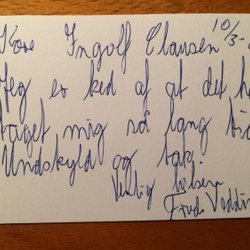 Kære Ingolf Clausen 10/3-
Jeg er ked af at det h
taget mig så lang tid
Undskyld og tak.
Venlig hilsen
Frode